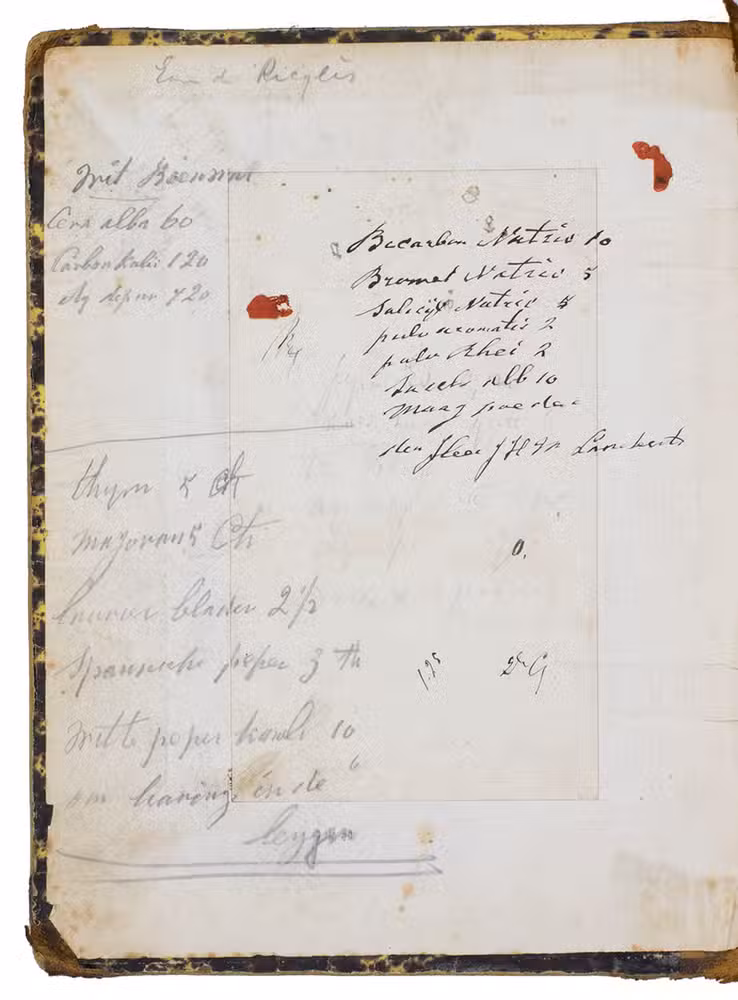 Eau de Ricqlès
Wit Boenwas
Cera alba 60
Carbon Kalii 120
Aq depur 720
Bicarbon Natric 10
Bromet Natric 5
Salicyl Natric 5
pulv aromatic 2
pulv Rhei 2
Sacch alb 10
Maag poeder
den Heer J H Lambert
thijm 5 ct
Majoraan 5 Ct
Laurier bladen 2 1/2
Spaansche peper 3
Witte peper 10
om haring in te
leggen
0.
1.25 Dr G